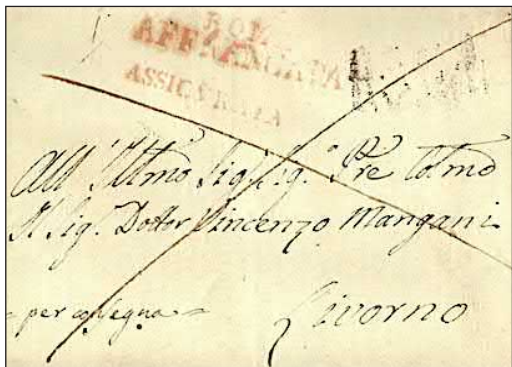 ROM
AFFRANCATA
ASSICURATA
All' Illmo Sig. Sig.e Pre Colmo
Il Sig. Dottor Vincenzo Mangani
Livorno
= per consegna =